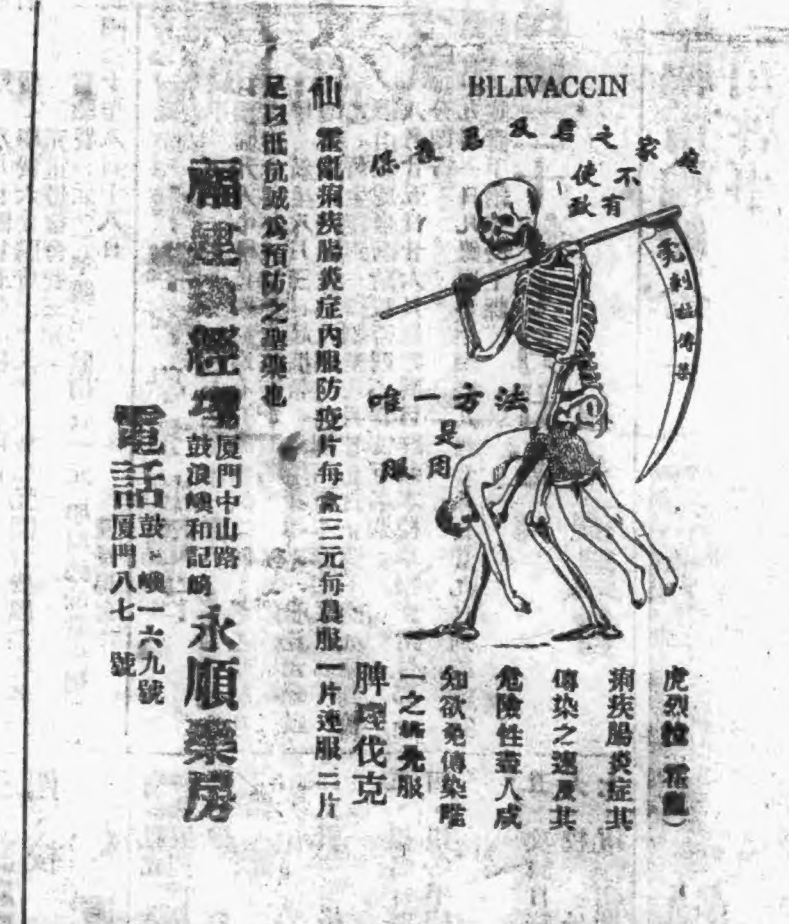 BILIVACCIN
保護君及君之家庭
使不
致有
虎列拉傳染
唯一方法
是
服用
虎烈拉(霍亂)
痢疾腸炎症其
傳染之速及其
危險性盡人咸
知欲免傳染唯
一之 服
脾理伐克
仙 霍亂痢疾腸炎症內服防疫片每盒三元每晨服一片連服三片
足以抵抗誠爲預防之聖藥也
福建總經理
廈門中山路
鼓浪嶼和記崎
永順藥房
電話
鼓 嶼一六九號
廈門八七 號